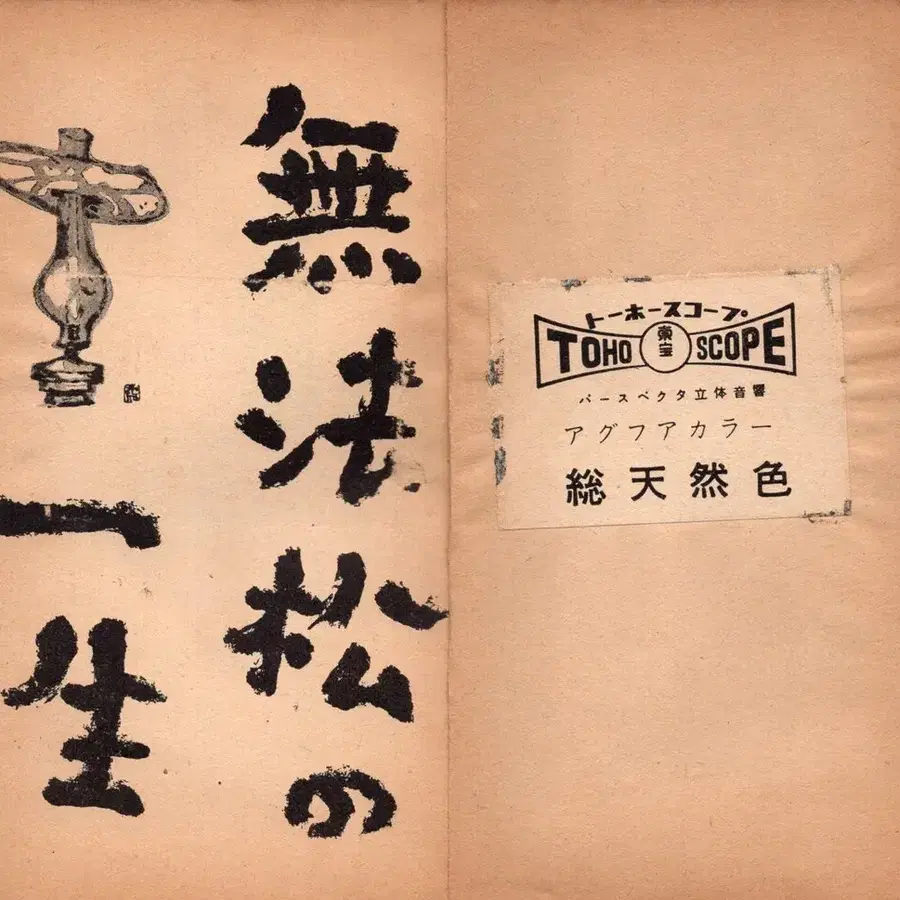 無法松の
一生
トーホースコープ
TOHO 東宝 SCOPE
パースペクタ立体音響
アグフアカラー
総天然色